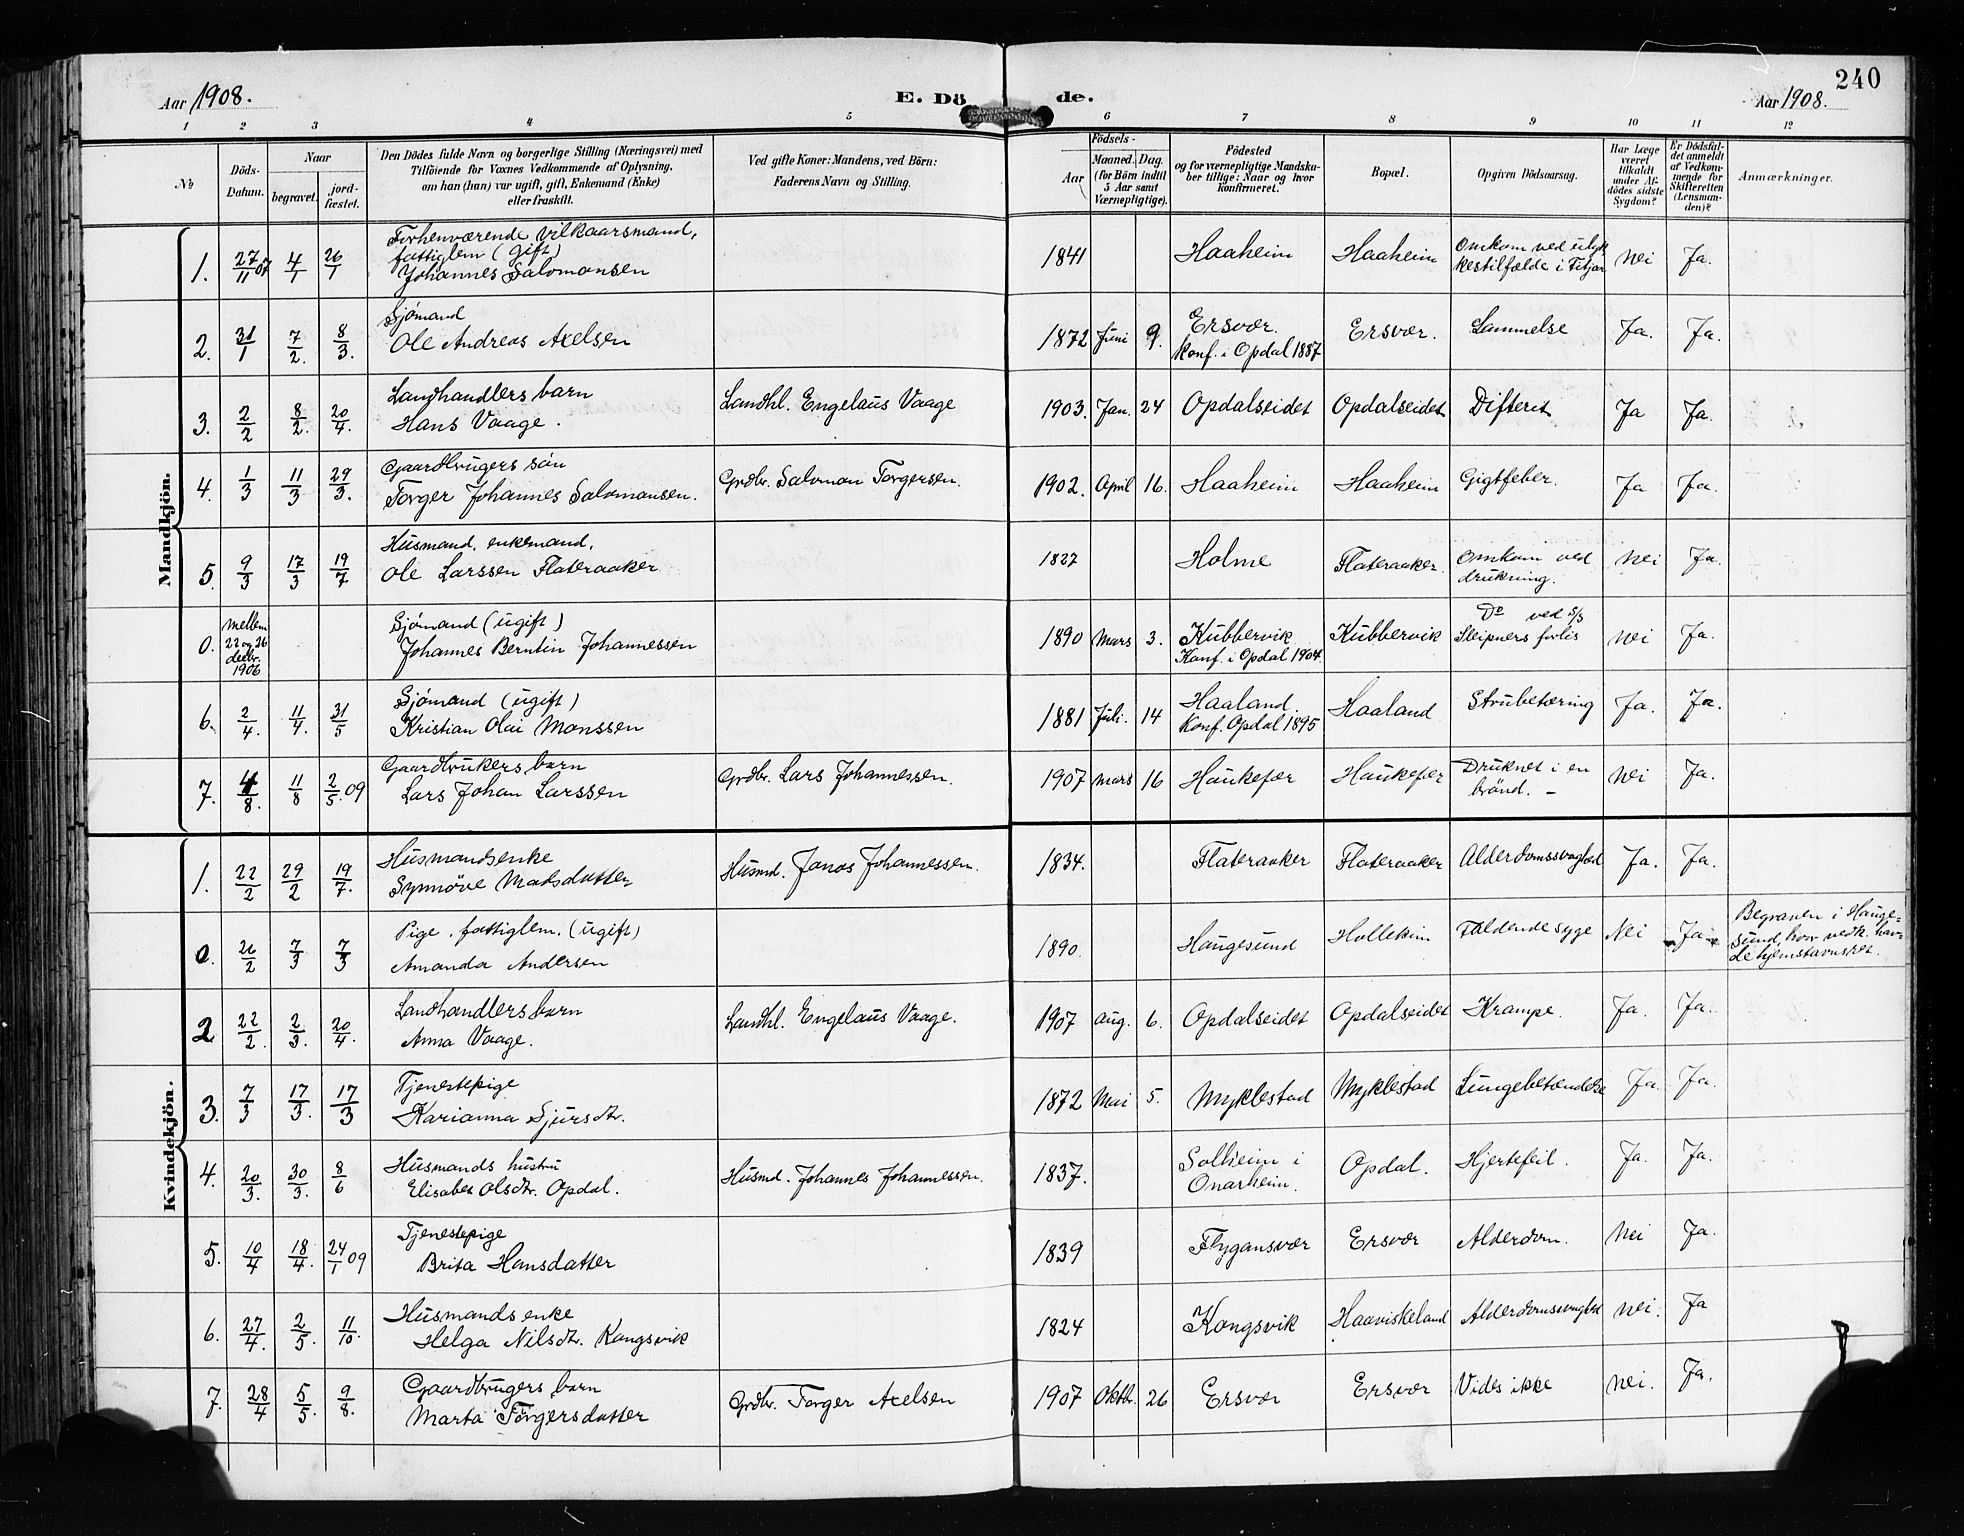 240
Aar 1908. E. Dö de. Aar 1908.
1 2 3 4 5 6 7 8 9 10 11 12
No
Döds-Datum.
Naar
begravet.
jord-fæstet.
Den Dödes fulde Navn og borgerlige Stilling (Næringsvei) med
Tilföiende for Voxnes Vedkommende af Oplysning,
om han (hun) var ugift, gift, Enkemand (Enke)
eller fraskilt.
Ved gifte Koner: Mandens, ved Börn:
Faderens Navn og Stilling.
Födsels-
Aar
Maaned. Dag.
(for Börn indtil
5 Aar samt
Værnepligtige).
Födested
og for værnepligtige Mandska-
ber tillige: Naar og hvor
konfirmeret.
Bopæl.
Opgiven Dödsaarsag.
Har Læge
været
tilkaldt
under Af-
dödes sidste
Sygdom?
Er Dödsfal-
det anmeldt
af Vedkom-
mende for
Skifteretten
(Lensman-
den)?
Anmærkninger.
Mandkjön.
1. 27/11 07 4/1 26/1 Forhenværende vilkaarsmand,
fattiglem (gift)
Johannes Salomonsen 1841 Haaheim Haaheim Omkom ved ulyk
kestilfælde i Fitjar Nei Ja.
2. 31/1 7/2. 8/3. Sjömand
Ole Andreas Axelsen 1872 Juni 9. Ersvær.
Konf. i Opdal 1887 Ersvær. Lammelse Ja. Ja.
3. 2/2 8/2. 20/4. Landhandlers barn
Hans Vaage. Landhl. Engelaus Vaage 1903. Jan. 24 Opdalseidet Opdalseidet Difterit Ja Ja.
4. 1/3 11/3 29/3. Gaardbrugers sön
Torger Johannes Salomonsen. Grdbr. Salomon Torgersen. 1902. April 16. Haaheim Haaheim Gigtfeber. Ja Ja.
5 9/3 17/3 19/7 Husmand, enkemand,
Ole Larssen Flateraaker 1827 Holme Flateraaker. Omkom ved
drukning. Nei Ja.
0. mellem
22 og 26
decbr.
1906 Sjömand (ugift)
Johannes Berntin Johannessen 1890 Mars 3. Kubbervik
Konf. i Opdal 1904. Kubbervik Do ved S/S
Sleipners forlis Nei Ja.
6. 2/4. 11/4. 31/5 Sjömand (ugift)
Kristian Olai Monssen 1881 Juli. 14 Haaland.
Konf. Opdal 1895 Haaland Strubetæring Ja. Ja.
7. 4/8. 11/8 2/5. 09 Gaardbrukers barn
Lars Johan Larssen Grdbr. Lars Johannessen. 1907 Mars 16 Haukefær Haukefær Druknet i en
brönd. – Nei Ja.
Kvindekjön.
1. 22/2 29/2 19/7. Husmandsenke
Synnöve Matsdatter Husmd. Jonas Johannessen. 1834. Flateraaker Flateraaker Alderdomssvaghed Ja. Ja.
0. 26/2 7/3 7/3 Pige, fattiglem, (ugift)
Amanda Andersen 1890. Haugesund Hollekim Faldende syge Nei Ja Begraven i Hauge-
sund, hvor vedk. hav-
de hjemstavnsret.
2 22/2. 2/3. 20/4. Landhandlers barn
Anna Vaage. Landhl. Engelaus Vaage. 1907 Aug. 6. Opdalseidet Opdalseidet Krampe. Ja. Ja.
3. 7/3 17/3. 17/3 Tjenestepige
Karianna Sjursdtr. 1872 Mai 5. Myklestad Myklestad Lungebetændelse Ja. Ja.
4. 20/3. 30/3. 8/6 Husmands hustru
Elisabet Olsdtr. Opdal. Husmd. Johannes Johannessen. 1837. Solheim i
Onarheim. Opdal. Hjertefeil. Ja. Ja.
5. 10/4 18/4. 24/1 09 Tjenestepige
Brita Hansdatter 1839 Flygansvær Ersvær Alderdom. Nei Ja.
6. 27/4. 2/5. 11/10. Husmands enke
Helga Nilsdtr. Kongsvik 1824 Kongsvik Haaviskeland Alderdomssvaghed Nei. Ja
7. 28/4 5/5. 9/8. Gaardbrugers barn
Marta Torgersdatter Grdbr. Torger Axelsen 1907 Oktbr. 26 Ersvær Ersvær Vides ikke Nei. Ja.